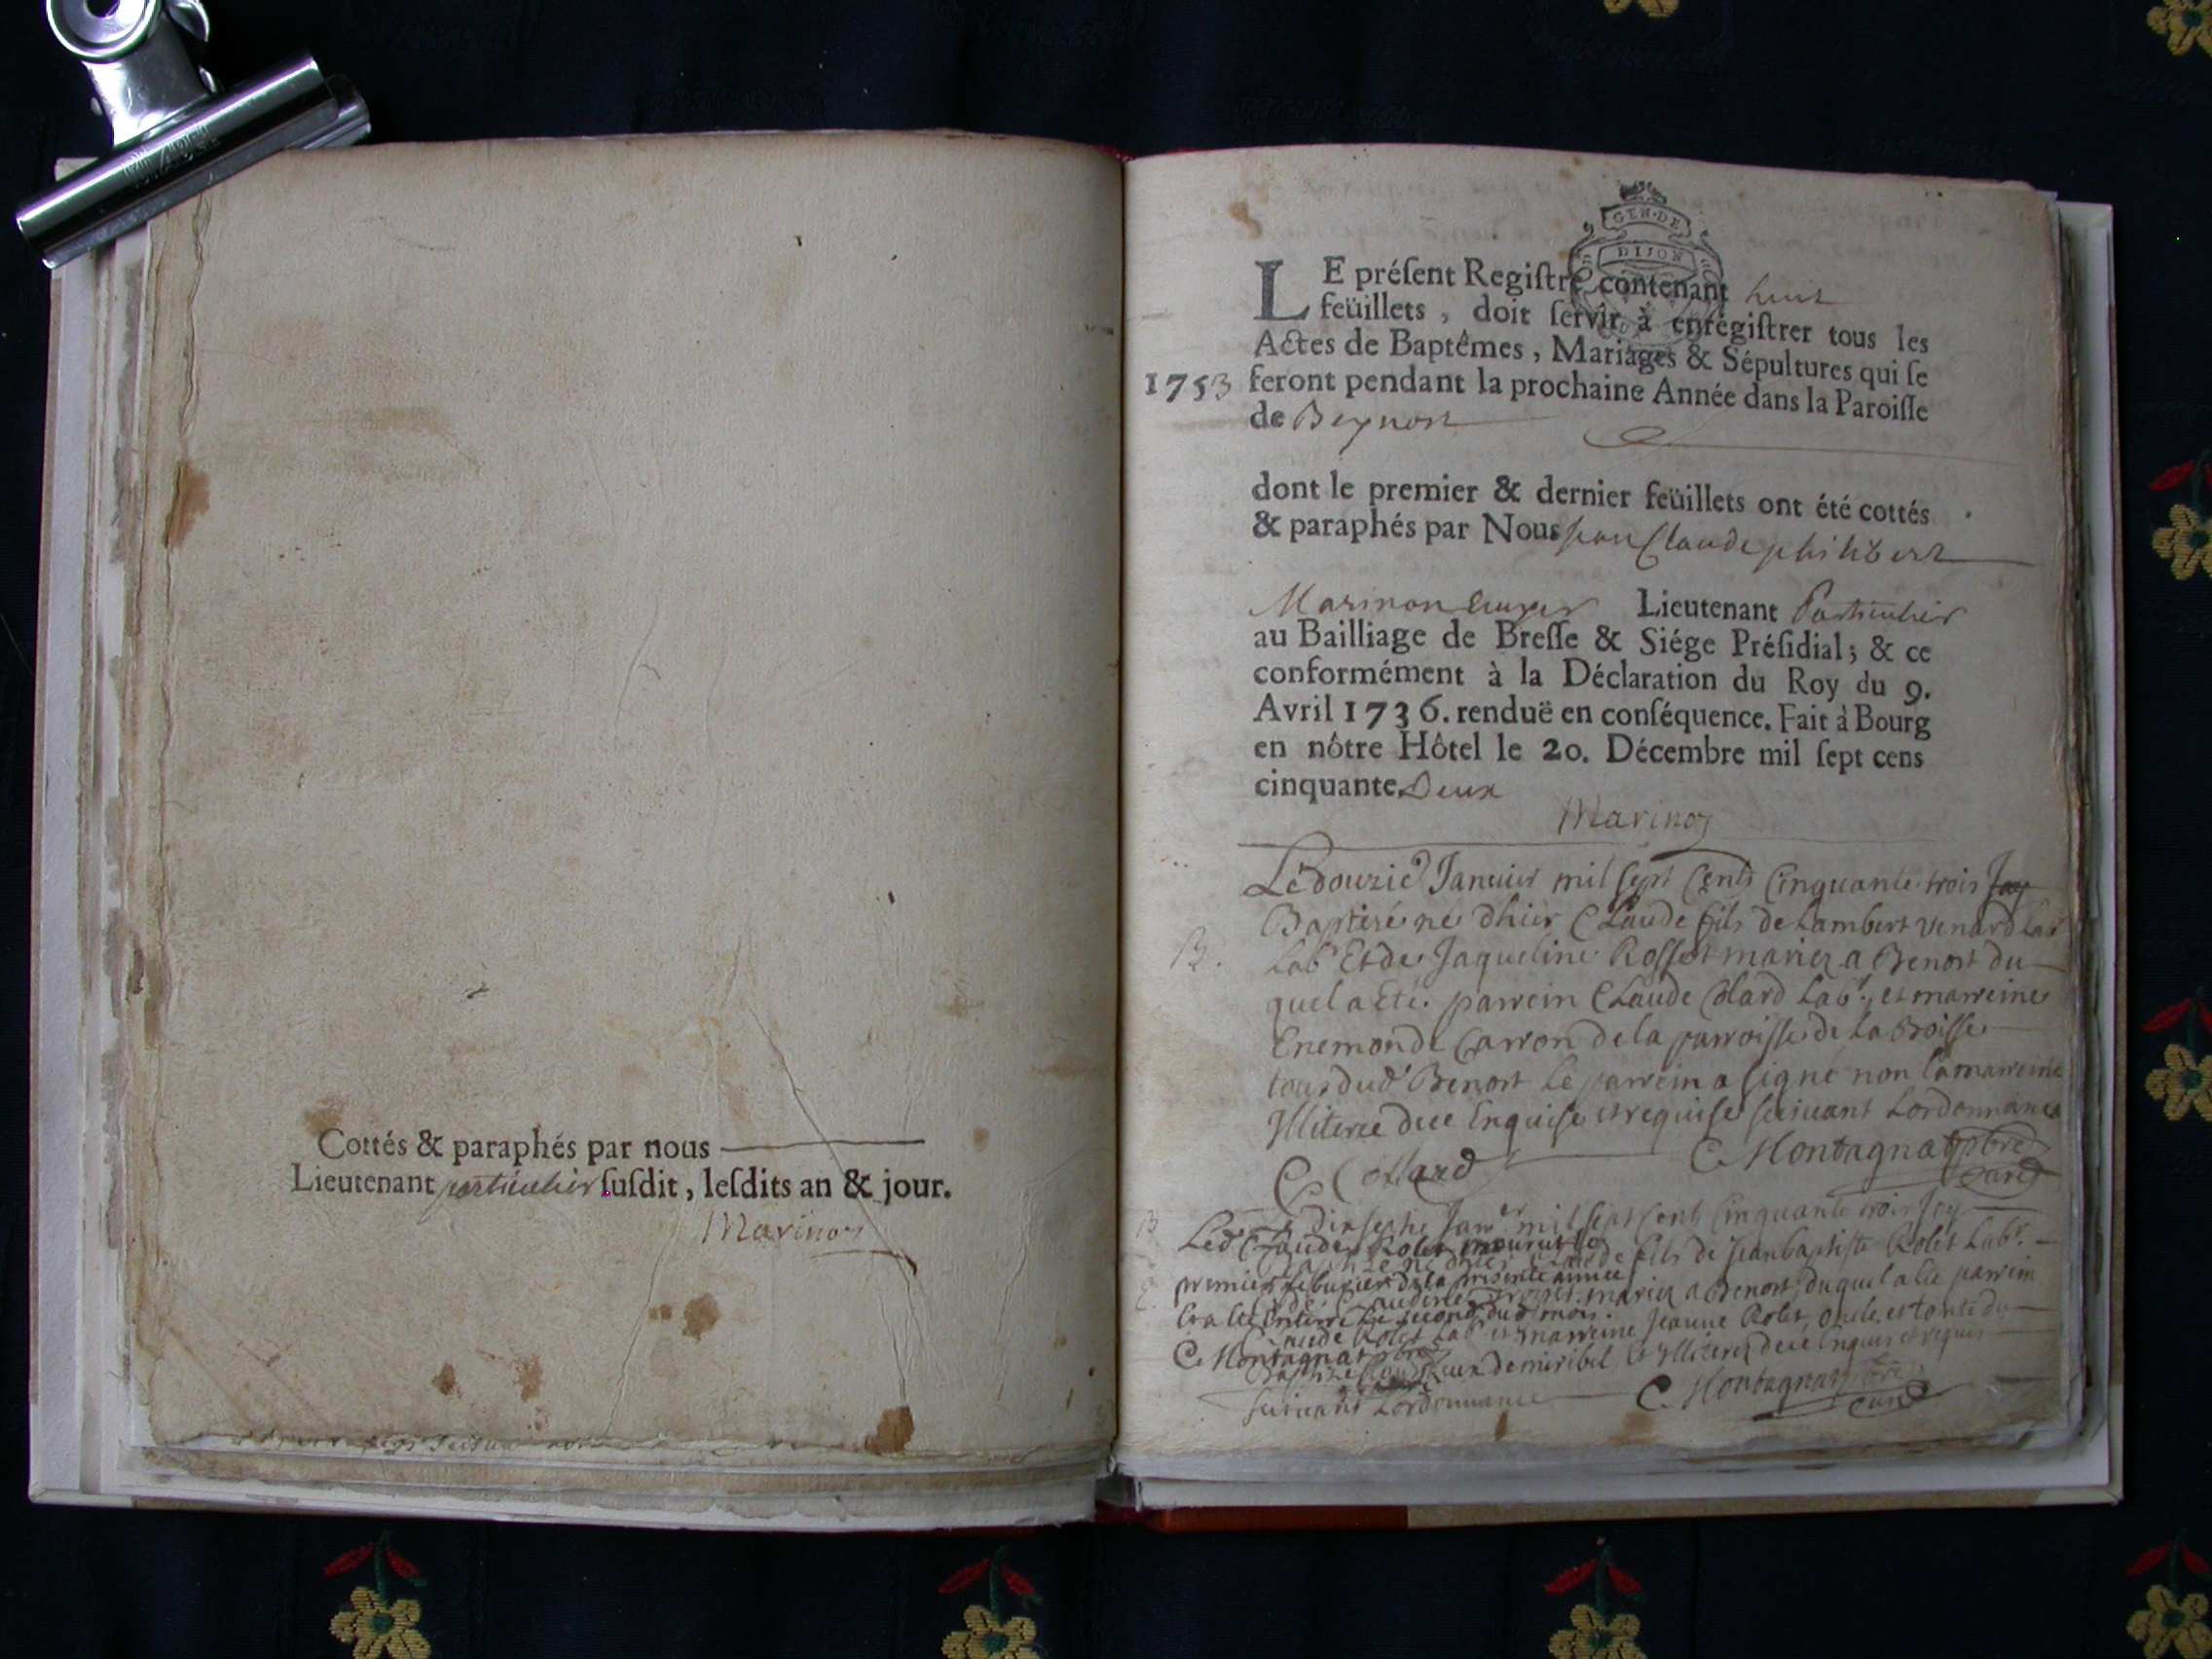 Cottés & paraphés par nous
Lieutenant particulier ſuſdit, leſdits an & jour.
Marinon
GEN·DE
DIJON
LE préſent Regiſtre contenant huit
feüillets, doit ſervir à enregiſtrer tous les
Actes de Baptêmes, Mariages & Sépultures qui ſe
1753 feront pendant la prochaine Année dans la Paroiſſe
de Beynost
dont le premier & dernier feüillets ont été cottés
& paraphés par Nous Jean Claude philibert
Marinon Lieutenant Particulier
au Bailliage de Breſſe & Siége Préſidial; & ce
conformément à la Déclaration du Roy du 9.
Avril 1736. renduë en conſéquence. Fait à Bourg
en nôtre Hôtel le 20. Décembre mil ſept cens
cinquante Deux
Marinon
Le douzie Januier mil sept Cents Cinquante trois Jay
Baptizé né dhier Claude fils de Lambert venard Lab
B. Lab Et de Jaqueline Rosset mariez a Benost du
quel a Eté parrein Claude Colard Labr, et marreine
Enemonde Carron de la parroisse de La Boisse
tous dud Benost le parrein a signé non la marreine
Jlliterée deue Enquise et requise suivant Lordonnance
C. Collard C. Montagnat pbre
Curé
B Le dixseptie Janer mil sept Cents Cinquante trois Jay
Led Claude Rolet mourut le
Claude fils de Jean baptiste Rolet Labr.
premier feburier de la presente année
mariez a Benost, duquel a Eté parrein
Et a Eté Enterré Le second dud mois.
Claude Rolet Labr et marreine Jeanne Rolet, oncle et tante du
C. Montagnat pbre
Baptizé de miribel Jlliterez deue Enquis et requis
suivant Lordonnance C. Montagnat pbre
Curé